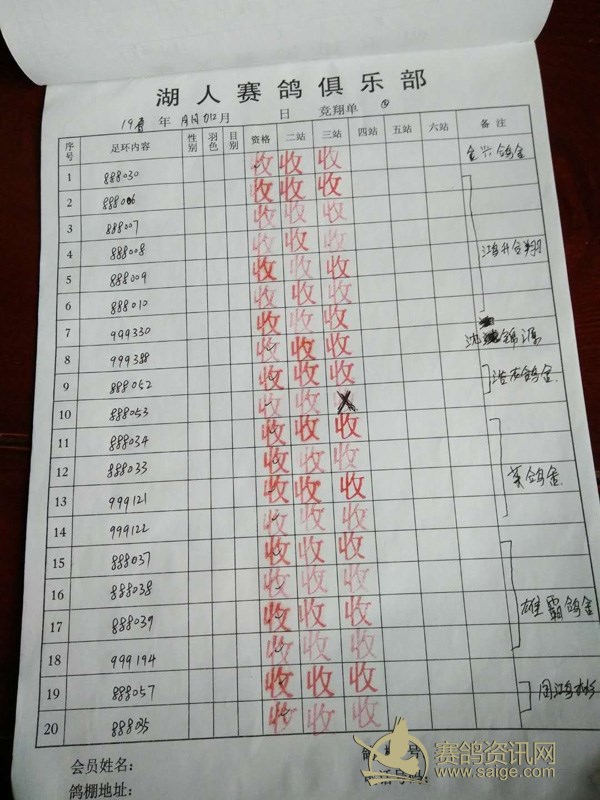 湖人赛鸽俱乐部
19春 年 月 日 竞翔单 ④
序号 足环内容 性别 羽色 目别 资格 二站 三站 四站 五站 六站 备注
1 888030 收 收 收
2 888006 收 收 收
3 888007 收 收 收
4 888008 收 收 收
5 888009 收 收 收
6 888010 收 收 收
7 999330 收 收 收
8 999388 收 收 收
9 888052 收 收 收
10 888053 收 收
11 888034 收 收 收
12 888033 收 收 收
13 999121 收 收 收 英鸽舍
14 999122 收 收 收
15 888037 收 收 收
16 888038 收 收 收
17 888039 收 收 收 雄霸鸽舍
18 999194 收 收 收
19 888057 收 收 收
20 888035 收 收 收
会员姓名：
鸽棚地址：
赛鸽资讯网
www.saige.com